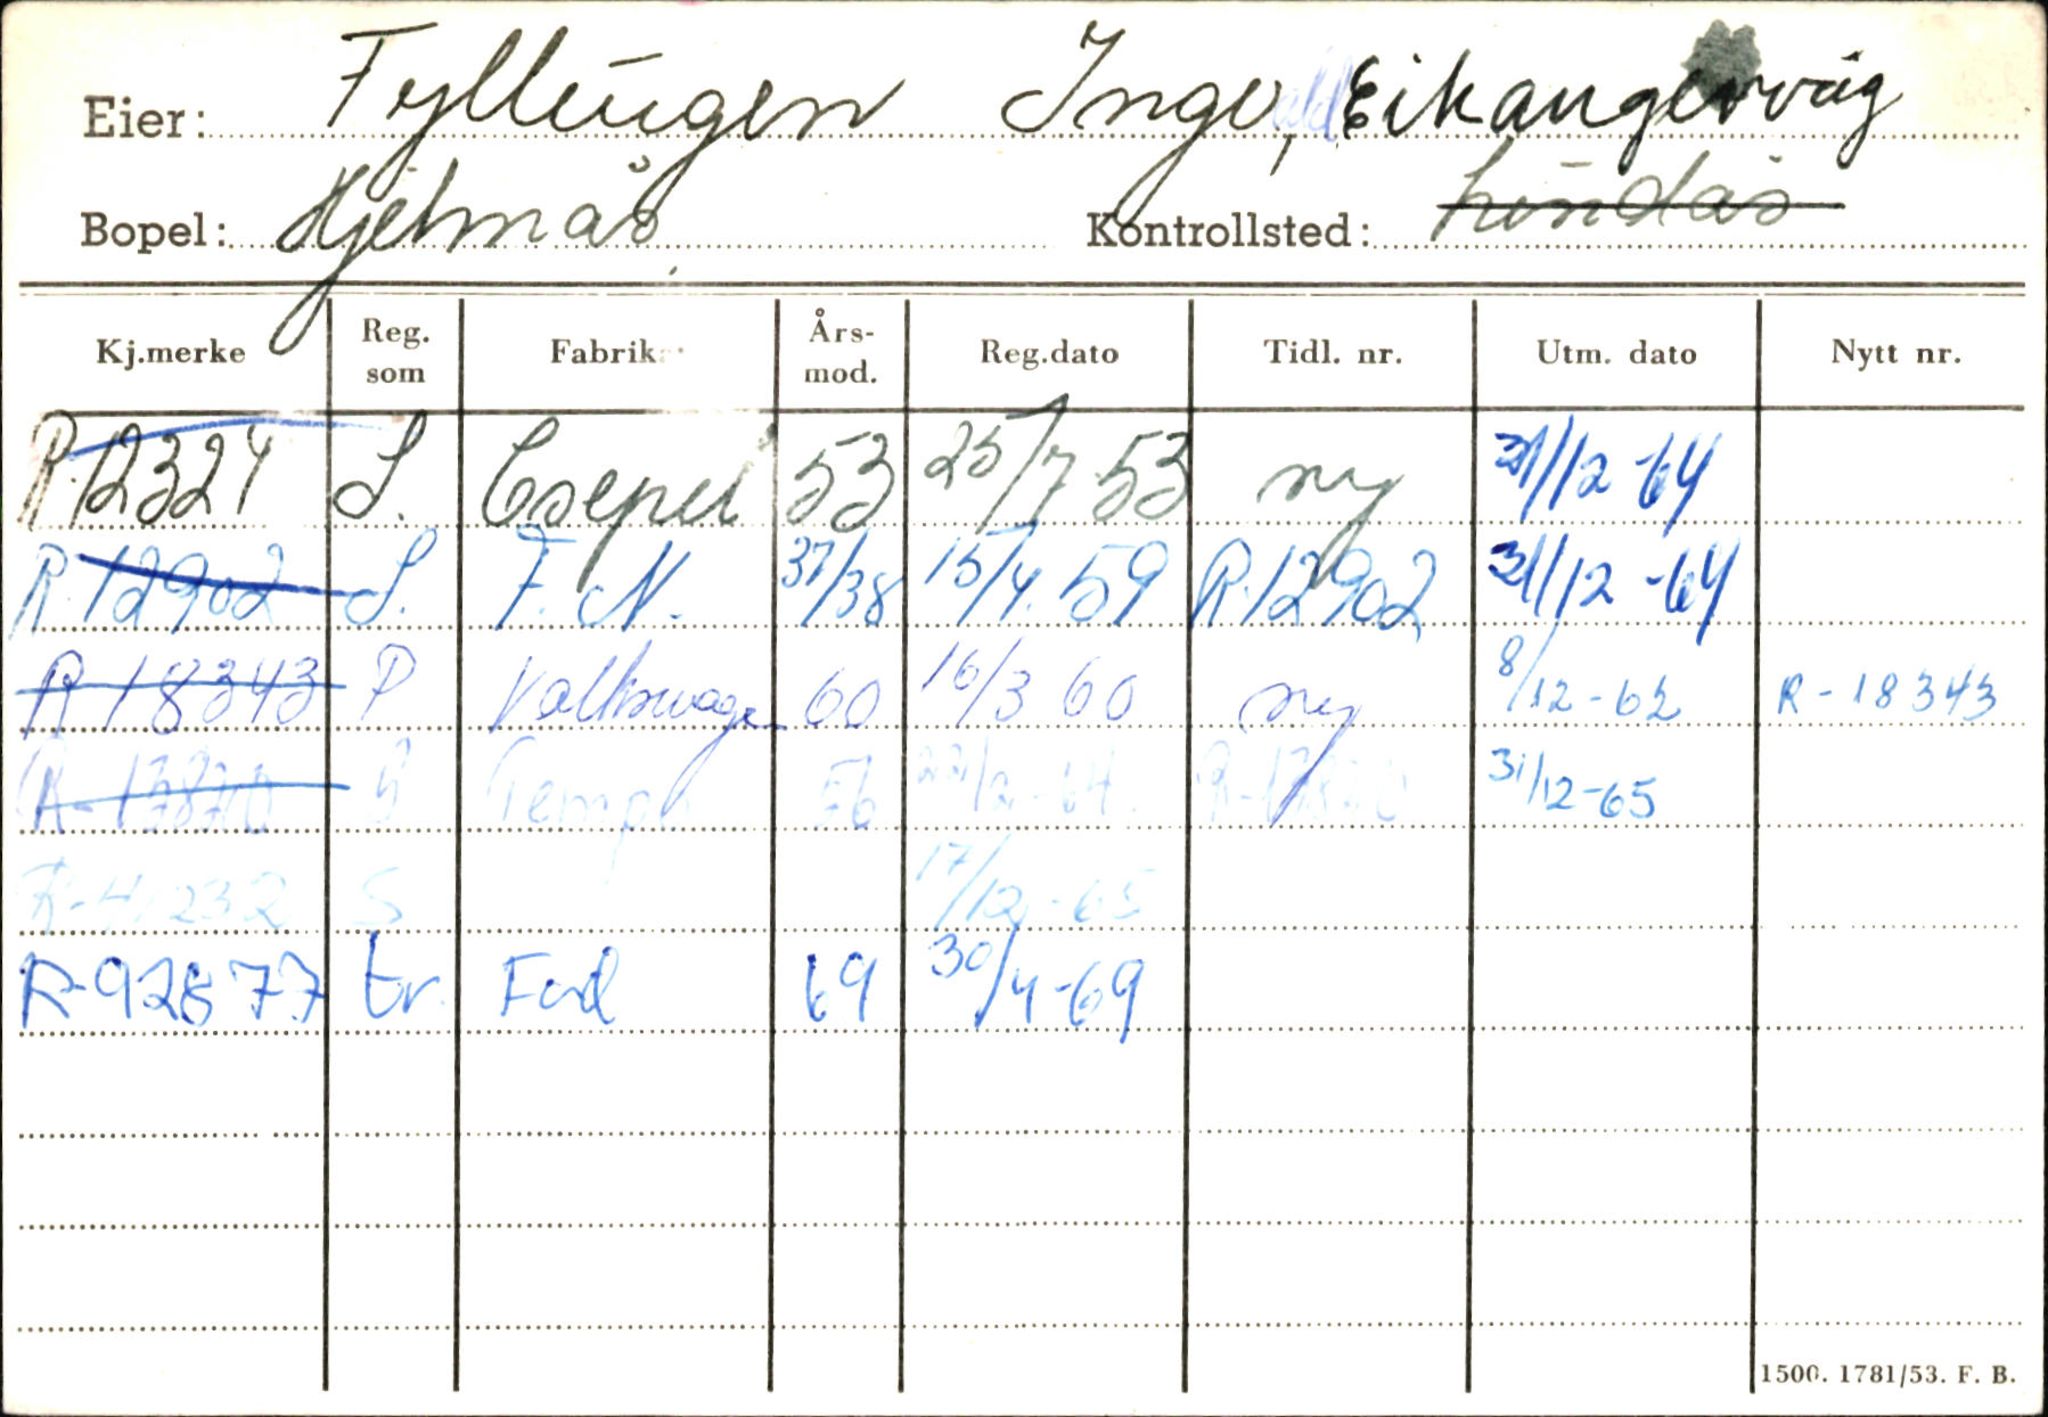 Eier: Fyllingen Inge, Eikangervåg
Bopel: Hjelmås, Kontrollsted: Lindås
Kj.merke Reg. som Fabrikat Års-mod. Reg.dato Tidl. nr. Utm. dato Nytt nr.
R-12324 S. Csepel 53 25/7 53 ny 31/12-64
R-12902 S. F.N. 37/38 15/4.59 R-12902 31/12-64
R-18343 P Volkswagen 60 16/3 60 ny 8/12-62 R-18343
R-17870 Tempo 56 22/2-64. R-17870 31/12-65
R-41232 S 17/12-65
R-92877 tr. Ford 69 30/4-69
1500. 1781/53. F. B.